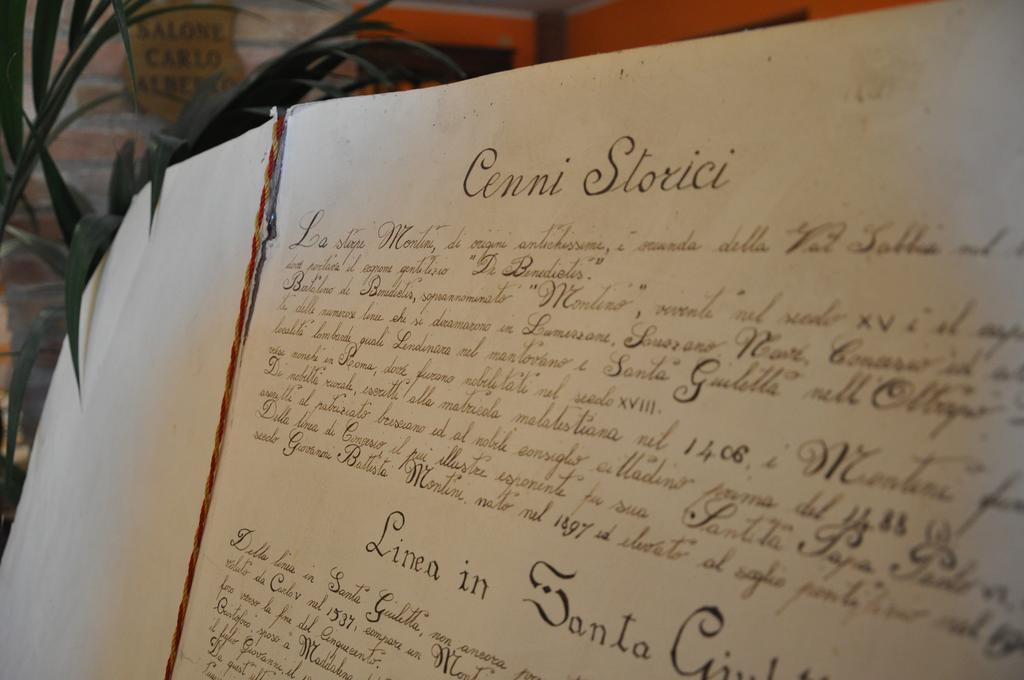 SALONE
CARLO
ALBERTO
Cenni Storici
La stirpe Montini, di origine antichissime, è oriunda della Val Sabbia nel
dove portava il cognome gentilizio "De Benedictis".
Bertolino de Benedictis, soprannominato "Montino", vivente nel secolo XV è il
ti delle numerose linee che si diramarono in Lumezzane, Sarezzano Nave, Concesio ed
località lombarde quali Lendinara nel mantovano e Santa Giuletta nell'Oltrepò
vese nonchè in Roma, dove furono nobilitati nel secolo XVIII.
Di nobiltà rurale, iscritti alla matricola malatestiana nel 1406, i Montini
ascritti al patriziato bresciano ed al nobile consiglio cittadino prima del 1488
Della linea di Concesio il più illustre esponente fu sua Santità Papa Paolo VI,
secolo Giovanni Battista Montini, nato nel 1897 ed elevato al soglio pontificio nel
Linea in Santa
Della linea in Santa Giuletta, non ancora
venuto da Carlo V nel 1537, compare un
foro verso la fine del Cinquecento.
Cristoforo sposò a Maddalena
il figlio Giovanni, il
Da quest